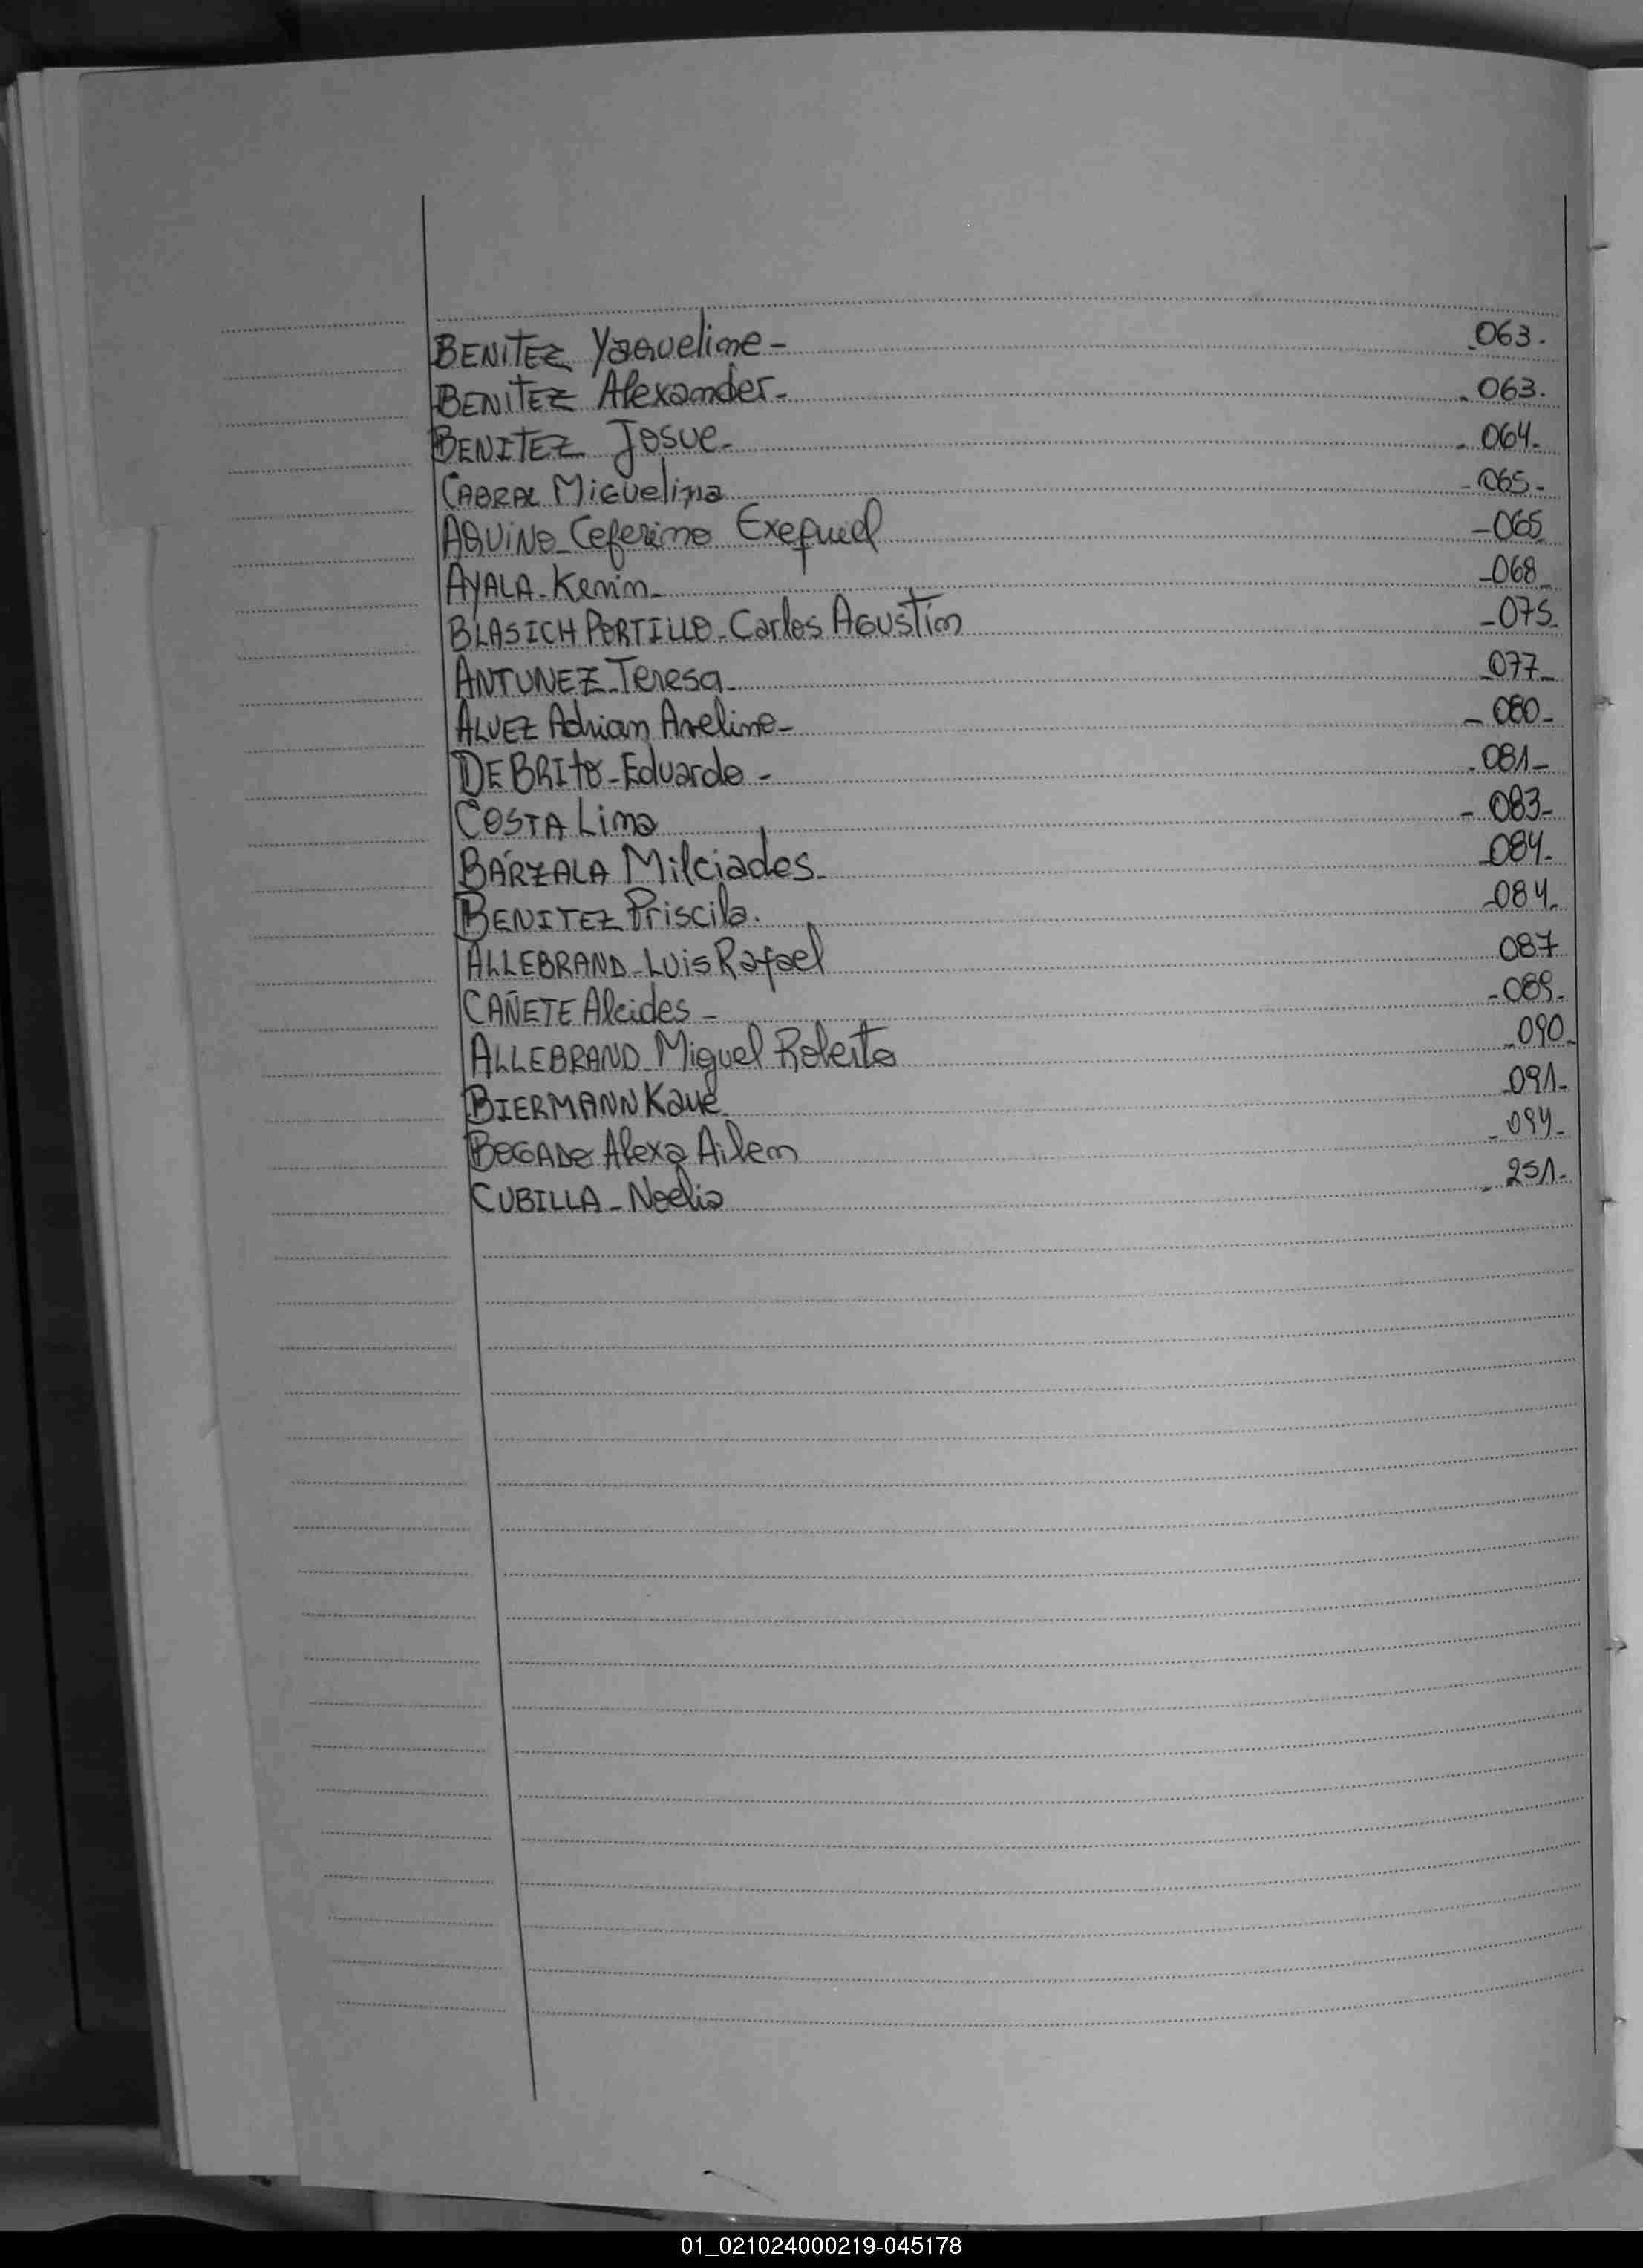 BENITEZ Yaqueline - -063-
BENITEZ Alexander - - 063.
BENITEZ Josue - - 064-
CABRAL Miguelina - 065 -
AQUINO - Ceferino Exequiel - 065
AYALA - Kevin - - 068 -
BLASICH PORTILLO - Carlos Agustín - 075-
ANTUNEZ - Teresa - - 077 -
ALVEZ Adrian Avelino - - 080 -
DE BRITO - Eduardo - - 081 -
COSTA Lima - 083 -
BÁRZALA Milciades - - 084 -
BENITEZ Priscila. - 084 -
ALLEBRAND - Luis Rafael 087
CAÑETE Alcides - - 089 -
ALLEBRAND - Miguel Roberto - 090 -
BIERMANN Kaue - 091 -
BOGADO Alexa Ailen - 094 -
CUBILLA - Noelia - 251 -
01_021024000219-045178